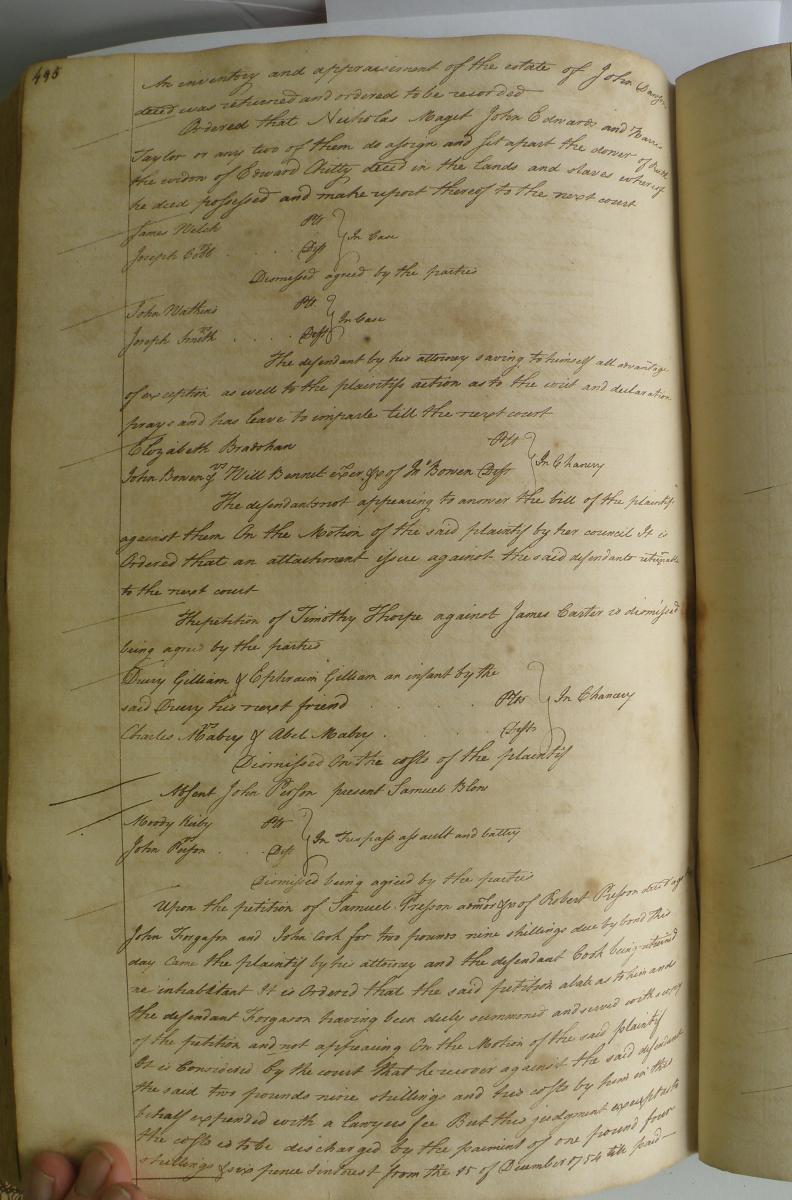 495
An inventory and appraisment of the estate of John
decd was returned and ordered to be recorded
Ordered that Nicholas Maget John Edwards and
Taylor or any two of them do assign and set apart the dower of
the widow of Edward Chitty decd in the lands and slaves whereof
he died possessed and make report thereof to the next court
James Welch Plt
vs } In Case
Joseph Cobb . . . . Deft
Dismissed agreed by the parties
John Wathins Plt
vs } In Case
Joseph Smith . . . . Deft
The defendant by his attorney saving to himself all advantage
of exception as well to the plaintifs action as to the writ and declaration
prays and has leave to imparle till the next court
Elizabeth Bradshaw Plt
vs } In Chancery
John Bowen & Will Bennet exer &c of Jno Bowen Defts
The defendants not appearing to answer the bill of the plaintif
against them On the Motion of the said plaintif by her council It is
Ordered that an attachment issue against the said defendants returnable
to the next court
The petition of Timothy Thorpe against James Carter is dismissed
being agreed by the parties
Drury Gilliam & Ephraim Gilliam an infant by the
said Drury his next friend . . . . Plts
vs } In Chancery
Charles Mabry & Abel Mabry . . . . Defts
Dismissed On the costs of the plaintif
Absent John Person present Samuel Blow
Moody Kirby Plt
vs } In Trespass assault and battry
John Person . . . Deft
Dismissed being agreed by the parties
Upon the petition of Samuel Presson admor &c of Robert Presson decd agt
John Forgason and John Cook for two pounds nine shillings due by bond this
day Came the plaintif by his attorney and the defendant Cook being returned
no inhabitant It is Ordered that the said petition abate as to him and
the defendant Forgason having been duly summoned and served with a copy
of the petition and not appearing On the Motion of the said plaintif
It is Considered by the court that he recover against the said defendant
the said two pounds nine shillings and his costs by him in this
behalf expended with a lawyers fee But this judgment except as to
the costs is to be discharged by the paiment of one pound four
shillings & six pence & interest from the 15 of December 1754 till paid